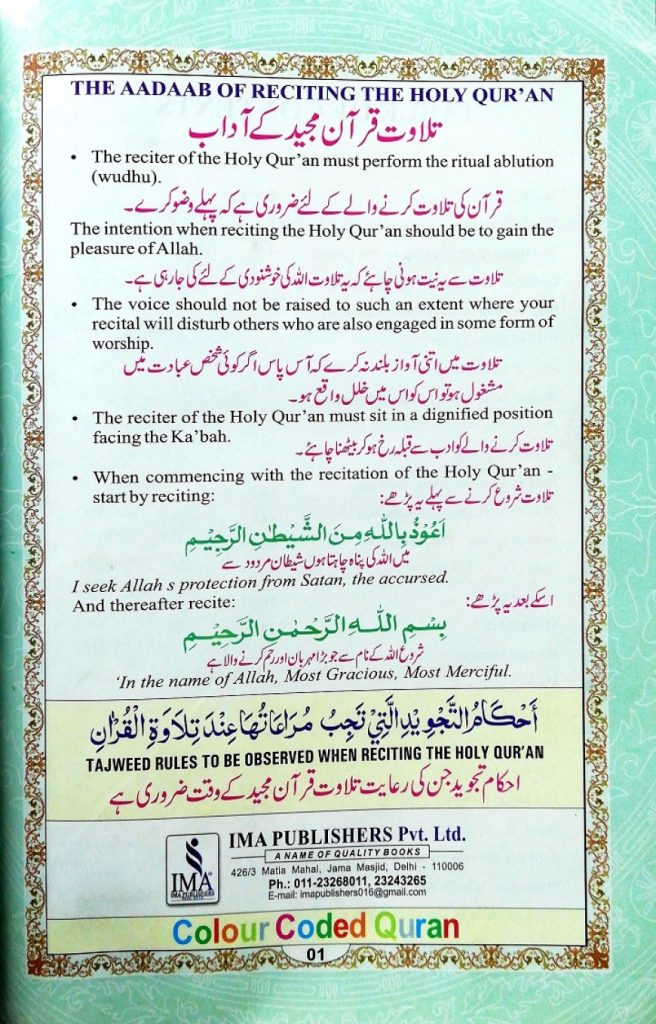 THE AADAAB OF RECITING THE HOLY QUR'AN
تلاوت قرآن مجید کے آداب
• The reciter of the Holy Qur'an must perform the ritual ablution
(wudhu).
قرآن کی تلاوت کرنے والے کے لئے ضروری ہے کہ پہلے وضو کرے۔
The intention when reciting the Holy Qur'an should be to gain the
pleasure of Allah.
تلاوت سے یہ نیت ہونی چاہئے کہ یہ تلاوت اللہ کی خوشنودی کے لئے کی جارہی ہے۔
• The voice should not be raised to such an extent where your
recital will disturb others who are also engaged in some form of
worship.
تلاوت میں اتنی آواز بلند نہ کرے کہ آس پاس اگر کوئی شخص عبادت میں
مشغول ہو تو اس کو اس میں خلل واقع ہو۔
• The reciter of the Holy Qur'an must sit in a dignified position
facing the Ka'bah.
تلاوت کرنے والے کو ادب سے قبلہ رخ ہو کر بیٹھنا چاہئے۔
• When commencing with the recitation of the Holy Qur'an -
start by reciting:
تلاوت شروع کرنے سے پہلے یہ پڑھے:
اَعُوْذُ بِاللّٰهِ مِنَ الشَّيْطٰنِ الرَّجِيْمِ
میں اللہ کی پناہ چاہتا ہوں شیطان مردود سے
I seek Allah s protection from Satan, the accursed.
And thereafter recite:
اسکے بعد یہ پڑھے:
بِسْمِ اللّٰهِ الرَّحْمٰنِ الرَّحِيْمِ
شروع اللہ کے نام سے جو بڑا مہربان اور رحم کرنے والا ہے
'In the name of Allah, Most Gracious, Most Merciful.
أَحْكَامُ التَّجْوِيْدِ الَّتِيْ تَجِبُ مُرَاعَاتُهَا عِنْدَ تِلَاوَةِ الْقُرْاٰنِ
TAJWEED RULES TO BE OBSERVED WHEN RECITING THE HOLY QUR'AN
احکام تجوید جن کی رعایت تلاوت قرآن مجید کے وقت ضروری ہے
IMA
IMA PUBLISHERS
IMA PUBLISHERS Pvt. Ltd.
A NAME OF QUALITY BOOKS
426/3 Matia Mahal, Jama Masjid, Delhi - 110006
Ph.: 011-23268011, 23243265
E-mail: imapublishers016@gmail.com
Colour Coded Quran
01